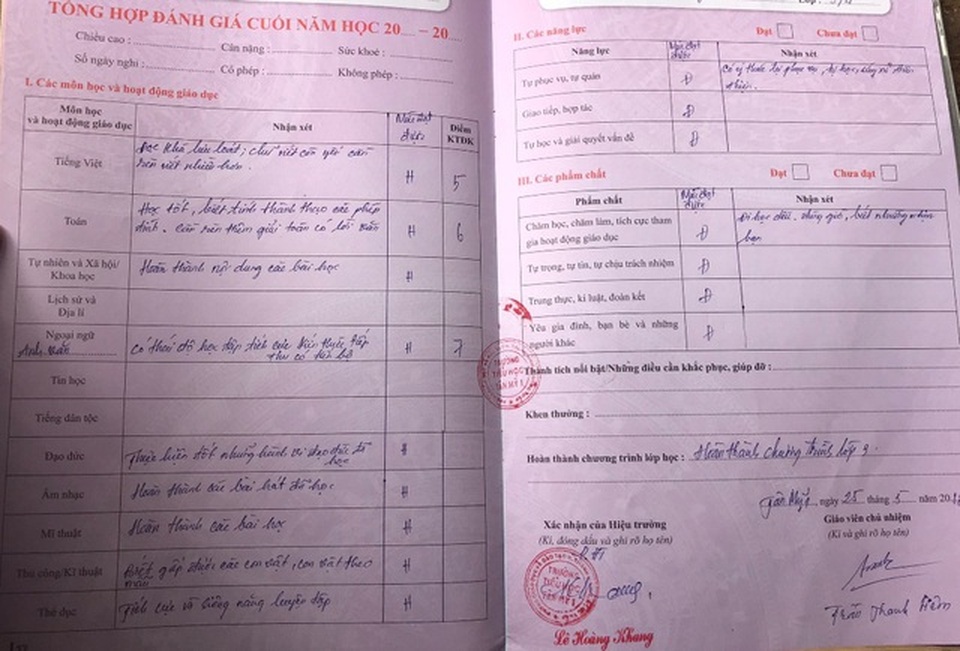 TỔNG HỢP ĐÁNH GIÁ CUỐI NĂM HỌC 20..... – 20.....
Chiều cao : Cân nặng : Sức khoẻ :
Số ngày nghỉ : Có phép : Không phép :
I. Các môn học và hoạt động giáo dục
Môn học và hoạt động giáo dục Nhận xét Mức đạt được Điểm KTĐK
Tiếng Việt Đọc khá lưu loát, chữ viết còn yếu cần rèn viết nhiều hơn. H 5
Toán Học tốt, biết tính thành thạo các phép tính. Cần rèn thêm giải toán có lời văn H 6
Tự nhiên và Xã hội/ Khoa học Hoàn thành nội dung các bài học H
Lịch sử và Địa lí
Ngoại ngữ Anh văn Có thái độ học tập tích cực tiếp thu có tiến bộ H 7
Tin học
Tiếng dân tộc
Đạo đức Thực hiện tốt những hành vi đạo đức đã học H
Âm nhạc Hoàn thành các bài hát đã học H
Mĩ thuật Hoàn thành các bài học H
Thủ công/Kĩ thuật Biết gấp con vật theo mẫu H
Thể dục Tích cực và siêng năng luyện tập H
Lớp :
II. Các năng lực Đạt Chưa đạt
Năng lực Mức đạt được Nhận xét
Tự phục vụ, tự quản Đ Có ý thức tự phục vụ, tự học,
Giao tiếp, hợp tác Đ
Tự học và giải quyết vấn đề Đ
III. Các phẩm chất Đạt Chưa đạt
Phẩm chất Mức đạt được Nhận xét
Chăm học, chăm làm, tích cực tham gia hoạt động giáo dục Đ Đi học đều, đúng giờ, biết nhường nhịn bạn
Tự trọng, tự tin, tự chịu trách nhiệm Đ
Trung thực, kỉ luật, đoàn kết Đ
Yêu gia đình, bạn bè và những người khác Đ
Thành tích nổi bật/Những điều cần khắc phục, giúp đỡ :
Khen thưởng :
Hoàn thành chương trình lớp học : Hoàn thành chương trình lớp 3.
ngày 25 tháng 5 năm 201
Xác nhận của Hiệu trưởng
(Kí, đóng dấu và ghi rõ họ tên)
Giáo viên chủ nhiệm
(Kí và ghi rõ họ tên)
TRƯỜNG TIỂU HỌC
Lê Hoàng Khang
Trần Thanh